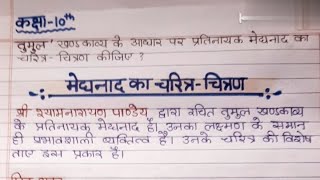 कक्षा-10th
'तुमुल' खण्डकाव्य के आधार पर प्रतिनायक मेघनाद का
चरित्र-चित्रण कीजिए ?
मेघनाद का चरित्र-चित्रण
श्री श्यामनारायण पाण्डेय द्वारा रचित तुमुल खण्डकाव्य
के प्रतिनायक मेघनाद हैं। उनका लक्ष्मण के समान
ही प्रभावशाली व्यक्तित्व है। उनके चरित्र की विशेष
ताएं इस प्रकार हैं।